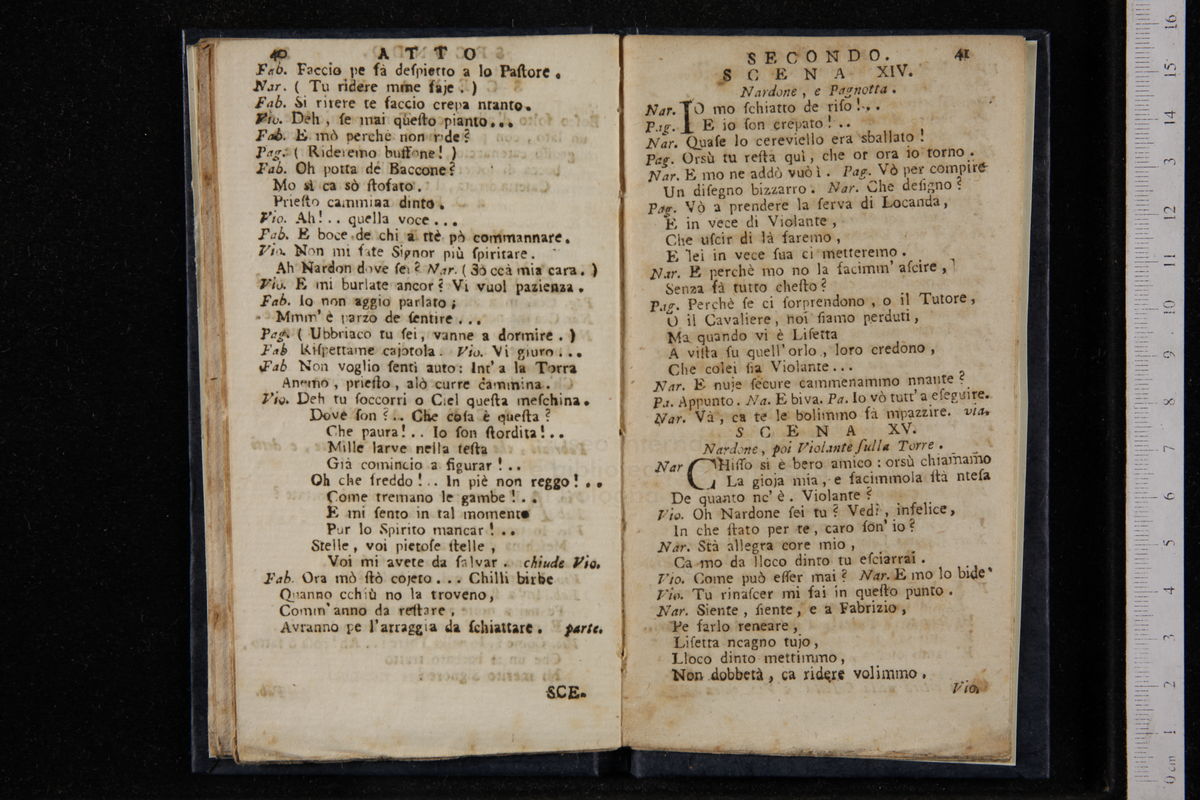 40 ATTO
Fab. Faccio pe fà deſpietto a lo Paſtore.
Nar. ( Tu ridere mme faje. )
Fab. Si ritere te faccio crepa ntanto.
Vio. Deh, ſe mai queſto pianto...
Fab. E mò perchè non ride?
Pag. ( Rideremo buffone! )
Fab. Oh potta de Baccone?
Mo sì ca sò ſtofato.
Prieſto cammina dinto.
Vio. Ah!.. quella voce...
Fab. E boce de chi a ttè pò commannare.
Vio. Non mi fate Signor più ſpiritare.
Ah Nardon dove ſei? Nar. ( Sò ccà mia cara. )
Vio. E mi burlate ancor? Vi vuol pazienza.
Fab. Io non aggio parlato;
Mmm' è parzo de ſentire...
Pag. ( Ubbriaco tu ſei, vanne a dormire. )
Fab Riſpettame cajotola. Vio. Vi giuro...
Fab Non voglio ſenti auto: Int' a la Torra
Animo, prieſto, alò curre cammina.
Vio. Deh tu ſoccorri o Ciel queſta meſchina.
Dove ſon?.. Che coſa è queſta?
Che paura!.. Io ſon ſtordita!..
Mille larve nella teſta
Già comincio a figurar!..
Oh che freddo!.. In piè non reggo!..
Come tremano le gambe!..
E mi ſento in tal momento
Pur lo Spirito mancar!..
Stelle, voi pietoſe ſtelle,
Voi mi avete da ſalvar. chiude Vio.
Fab. Ora mò ſtò cojeto... Chilli birbe
Quanno cchiù no la troveno,
Comm' anno da reſtare,
Avranno pe l'arraggia da ſchiattare. parte.
SCE.
SECONDO. 41
SCENA XIV.
Nardone, e Pagnotta.
Nar. IO mo ſchiatto de riſo!...
Pag. E io ſon crepato!..
Nar. Quaſe lo cereviello era sballato!
Pag. Orsù tu reſta quì, che or ora io torno.
Nar. E mo ne addò vuò ì. Pag. Vò per compire
Un diſegno bizzarro. Nar. Che deſigno?
Pag. Vò a prendere la ſerva di Locanda,
E in vece di Violante,
Che uſcir di là faremo,
E lei in vece ſua ci metteremo.
Nar. E perchè mo no la facimm' aſcire,
Senza fà tutto cheſto?
Pag. Perchè ſe ci ſorprendono, o il Tutore,
O il Cavaliere, noi ſiamo perduti,
Ma quando vi è Liſetta
A viſta ſu quell' orlo, loro credono,
Che colei ſia Violante...
Nar. E nuje ſecure cammenammo nnante?
Pa. Appunto. Na. E biva. Pa. Io vò tutt' a eſeguire.
Nar. Và, ca te le bolimmo fà mpazzire. via.
SCENA XV.
Nardone, poi Violante ſulla Torre.
Nar CHiſſo si è bero amico: orsù chiamamo
La gioja mia, e facimmola ſtà nteſa
De quanto nc' è. Violante?
Vio. Oh Nardone ſei tu? Vedi, infelice,
In che ſtato per te, caro ſon' io?
Nar. Stà allegra core mio,
Ca mo da lloco dinto tu eſciarrai.
Vio. Come può eſſer mai? Nar. E mo lo bide
Vio. Tu rinaſcer mi fai in queſto punto.
Nar. Siente, ſiente, e a Fabrizio,
Pe farlo reneare,
Liſetta ncagno tujo,
Lloco dinto mettimmo,
Non dobbetà, ca ridere volimmo.
Vio.